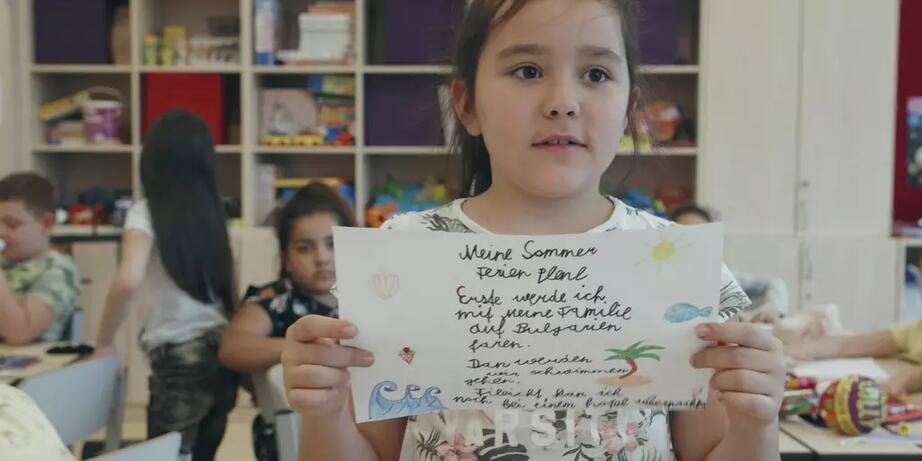 Meine Sommer
Ferien Plenl
Erste werde ich
mit Meine Familie
auf Bulgarien
faren.
Dan werden
wir schwimmen
gehen.
Fileicht kan ich
noch bei einem
VARSIT